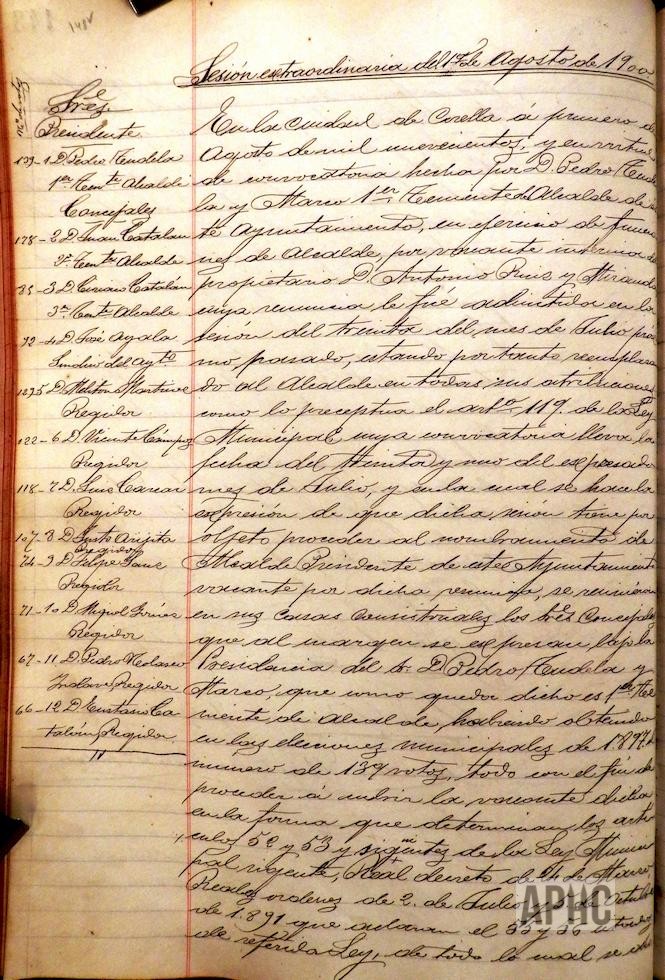 148v
Sesión extraordinaria del 1º de Agosto de 1900
Sres
Presidente
139-1 D. Pedro Tudela
1er Tente Alcalde
Concejales
178-2 D. Juan Catalan
2º Tente Alcalde
85-3 D. Catalán
3er Tente Alcalde
72-4 D. José Ayala
Sindico del Aytº
5 D. Meliton Martinez
Regidor
122-6 D. Vicente
Regidor
118-7 D. Luis
Regidor
107-8 D. Justo Arigita
Regidor
74-9 D. Felipe Sanz
Regidor
71-10 D. Miguel
Regidor
67-11 D. Pedro Nolasco
Regidor
66-12 D. Eustasio Ca
talán, Regidor
En la ciudad de Corella á primero de
Agosto de mil novecientos; y en virtud
de convocatoria hecha por D. Pedro Tude
la y Marco 1er Teniente de Alcalde de es
te Ayuntamiento, en ejercicio de funcio
nes de Alcalde, por vacante interina del
propietario D. Antonio Ruiz y Miranda
cuya renuncia le fué admitida en la
sesión del treinta del mes de Julio proxi
mo pasado, estando por tanto reemplaza
do al Alcalde en todas sus atribuciones
como lo preceptua el artº 119. de la Ley
Municipal cuya convocatoria lleva la
fecha del treinta y uno del expresado
mes de Julio, y en la cual se hace la
expresión de que dicha sesion tiene por
objeto proceder al nombramiento de
Alcalde Presidente de este Ayuntamiento
vacante por dicha renuncia, se reunieron
en sus casas consistoriales los Sres Concejales
que al margen se expresan, bajo la
Presidencia del Sr. D. Pedro Tudela y
Marco, que como queda dicho es 1er Te
niente de Alcalde, habiendo obtenido
en las elecciones municipales de 1.897 el
numero de 139 votos, todo con el fin de
proceder á cubrir la vacante dicha
en la forma que determinan los arti
culos 52 y 53 y sigtes de la Ley Munici
pal vigente, Real decreto de 24 de Marzo,
Reales ordenes de 2. de Julio y de Octubre
de 1.891 que aclaran el 53 y 56
de referida Ley, de todo lo cual se
APHC